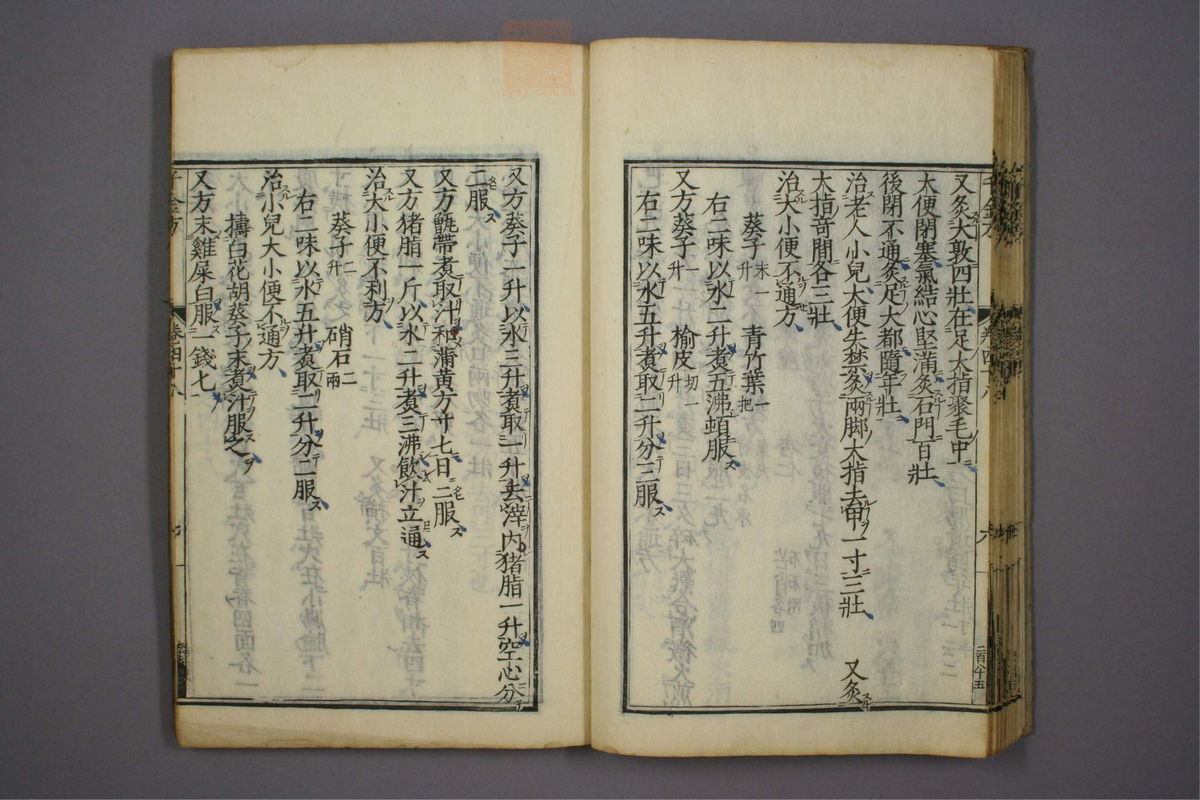 又灸大敦四壯在足大指聚毛中
大便閉塞氣結心堅滿灸石門百壯
後閉不通灸足大都隨年壯
治老人小兒大便失禁灸兩脚大指去甲一寸三壯 又灸
大指竒間各三壯
治大小便不通方
葵子末一升 青竹葉一把
右二味以水二升煮五沸頓服
又方葵子一升 榆皮切一升
右二味以水五升煮取二升分三服
卷四十八
六
二百八十五
又方葵子一升以水三升煮取一升去滓内猪脂一升空心分
二服
又方甑帶煮取汁和蒲黄方寸七日二服
又方猪脂一斤以水二升煮三沸飲汁立通
治大小便不利方
葵子二升 硝石二兩
右二味以水五升煮取二升分二服
治小兒大小便不通方
擣白花胡葵子末煮汁服之
又方末雞屎白服一錢七
千金方
卷四十八